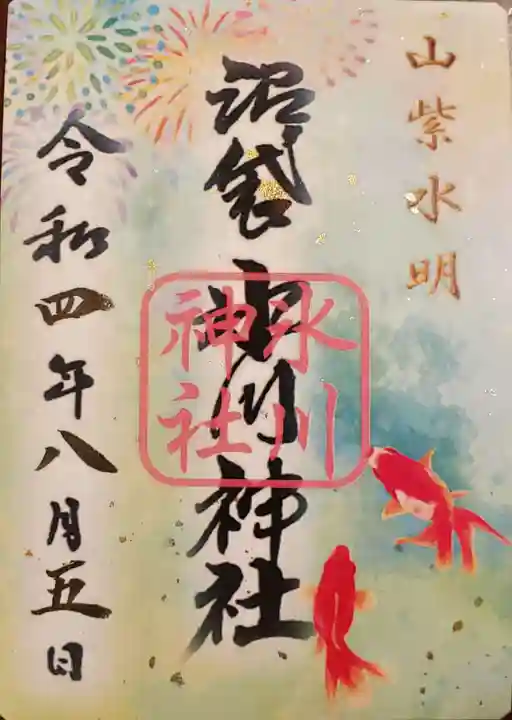 山紫水明
沼袋氷川神社
氷川
神社
令和四年八月五日